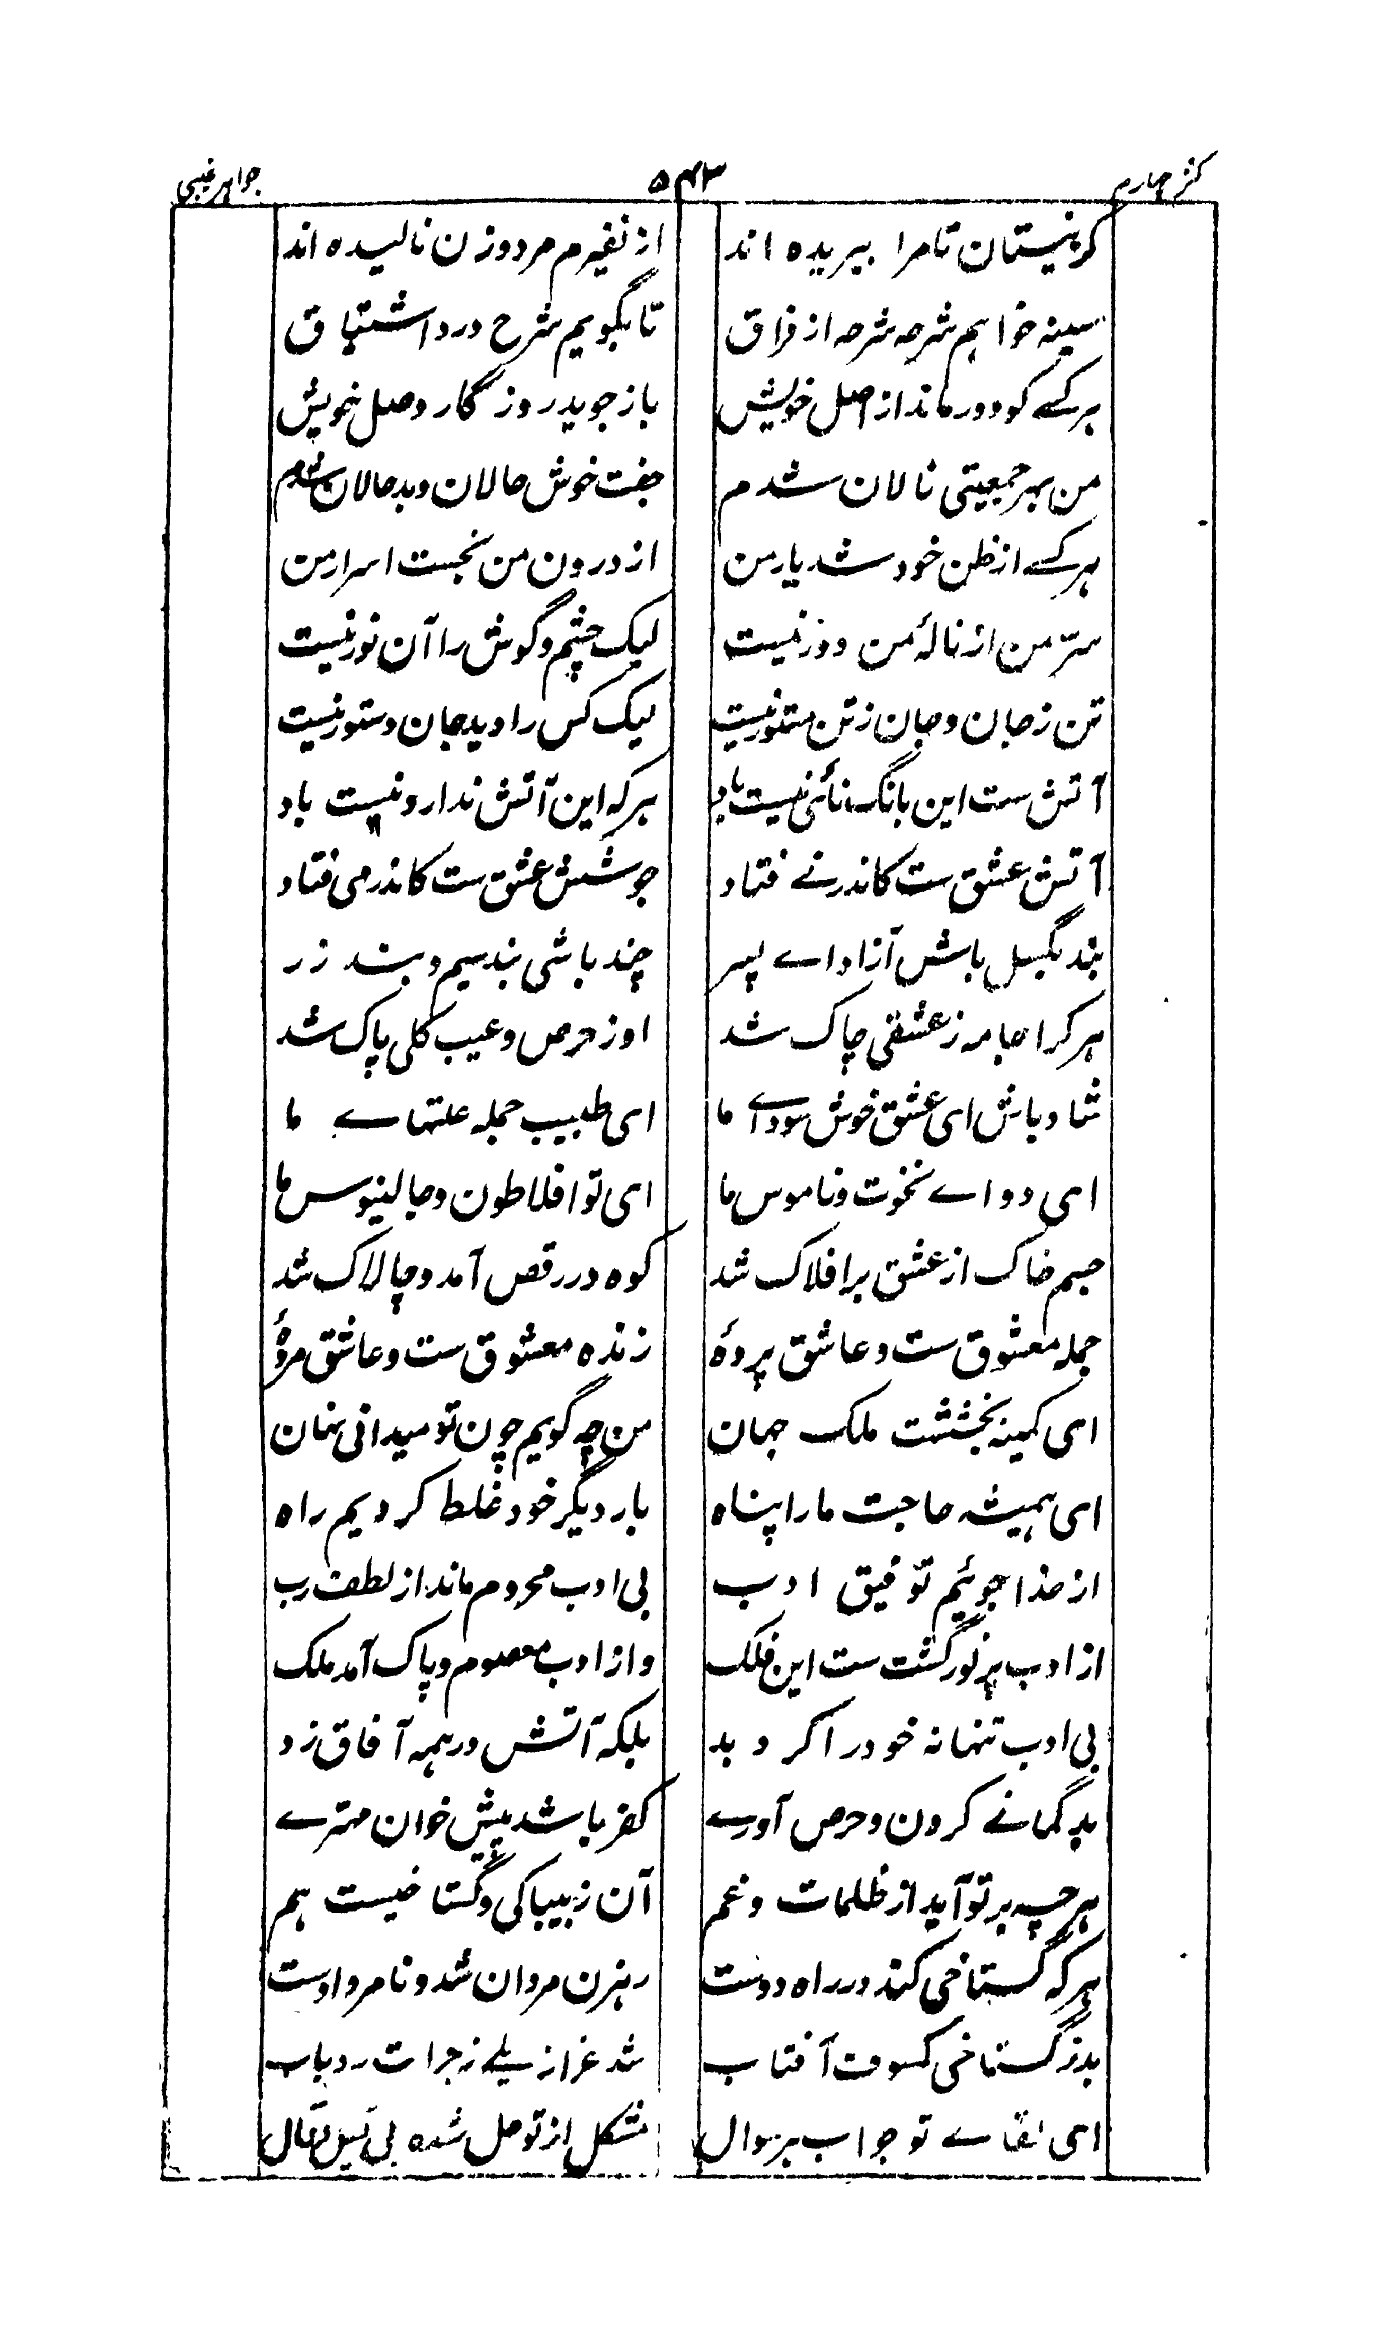 کنز چهارم ۵۴۳ جواهر غیبی
کز نیستان تا مرا ببریده اند از نفیرم مرد و زن نالیده اند
سینه خواهم شرحه شرحه از فراق تا بگویم شرح درد اشتیاق
هر کسے کو دور ماند از اصل خویش باز جوید روزگار وصل خویش
من بهر جمعیتی نالان شدم جفت خوش حالان و بدحالان شدم
هر کسے از ظن خود شد یار من از درون من نجست اسرار من
سرّ من از نالۂ من دور نیست لیک چشم و گوش را آن نور نیست
تن ز جان و جان ز تن مستور نیست لیک کس را دید جان دستور نیست
آتش ست این بانگ نائی نیست باد هر که این آتش ندارد نیست باد
آتش عشق ست کاندر نے فتاد جوشش عشق ست کاندر می فتاد
بند بگسل باش آزاد اے پسر چند باشی بند سیم و بند زر
هر کرا جامه ز عشقی چاک شد او ز حرص و عیب کلی پاک شد
شاد باش ای عشق خوش سوداے ما ای طبیب جمله علتهاے ما
ای دواے نخوت و ناموس ما ای تو افلاطون و جالینوس ما
جسم خاک از عشق بر افلاک شد کوه در رقص آمد و چالاک شد
جمله معشوق ست و عاشق پردۂ زنده معشوق ست و عاشق مردۂ
ای کمینه بخششت ملک جهان من چه گویم چون تو میدانی نهان
ای همیشه حاجت ما را پناه بار دیگر خود غلط کردیم راه
از خدا جوئیم توفیق ادب بی ادب محروم ماند از لطف رب
از ادب پر نور گشت ست این فلک و از ادب معصوم و پاک آمد ملک
بی ادب تنها نه خود را کرد بد بلکه آتش در همه آفاق زد
بد گمانے کردن و حرص آورے کفر باشد پیش خوان مهترے
هر چه بر تو آید از ظلمات و غم آن ز بیباکی و گستاخیست هم
هر که گستاخی کند در راه دوست رهزن مردان شد و نامرد اوست
بد ز گستاخی کسوف آفتاب شد عزازیلے ز جرات رد باب
ای لقاے تو جواب هر سوال مشکل از تو حل شده بی قیل و قال